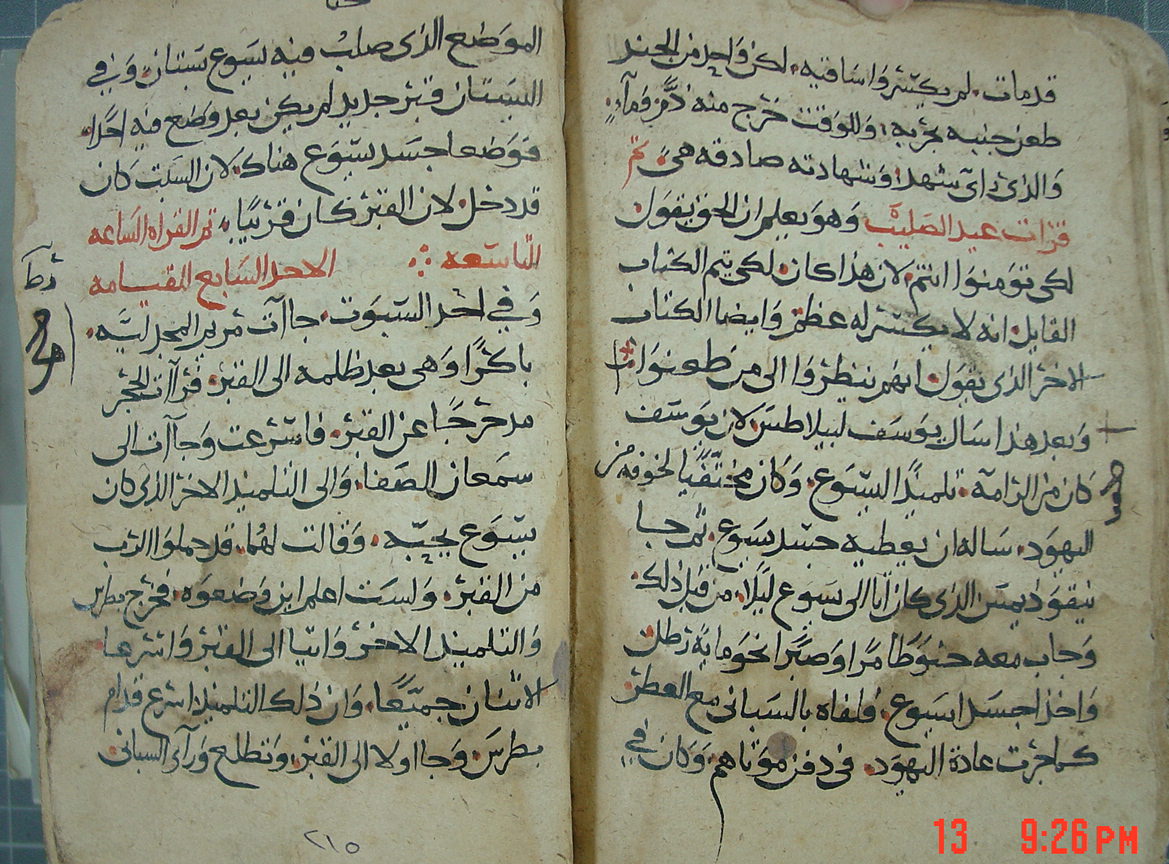 قد مات. لم يكسروا ساقيه. لكن واحد من الجند
طعن جنبه بحربه. وللوقت خرج منه دم وماء.
والذي رآى شهد. وشهادته صادقه هي. تم
قرات عيد الصليب وهو يعلم ان الحق يقول
لكي تومنوا انتم. لان هذا كان. لكي يتم الكتاب
القايل. انه لا يكسر له عظم. وايضا الكتاب
الاخر الذي يقول. انهم ينظروا الى من طعنوا.
وبعد هذا سال يوسف لبيلاطس. لان يوسف
كان من الرامة. تلميذا ليسوع. وكان مختفيا لخوفه من
اليهود. ساله ان يعطيه جسد يسوع. ثم جا
نيقوديمس الذي كان اتا الى يسوع ليلا. من قبل ذلك
وجاب معه حنوطا مرا وصبرا نحو ماية رطل.
واخذا جسد يسوع. فلفاه بالسباني مع العطر
كما جرت عادة اليهود. في دفن موتاهم. وكان في
الموضع الذي صلب فيه يسوع بستان. وفي
البستان قبر جديد لم يكن بعد وضع فيه احدا.
فوضعا جسد يسوع هناك. لان السبت كان
قد دخل. لان القبر كان قريبا. تم القراه الساعه
التاسعه الاحد السابع القيامه
وفي احد السبوت. جاآت مريم المجدليه.
باكرا وهي بعد ظلمه الى القبر. فرآات الحجر
مدحرجا عن القبر. فاسرعت وجاآت الى
سمعان الصفا. والى التلميذ الاخر الذي كان
يسوع يحبه. وقالت لهما. قد حملوا الرب
من القبر. ولست اعلم اين وضعوه. فخرج بطرس
والتلميذ الاخر واتيا الى القبر. واسرعا
الاثنان جميعا. وان ذلك التلميذ اسرع قدام
بطرس. وجا اولا الى القبر. وتطلع ورآى السباني
٢١٥
13 9:26PM